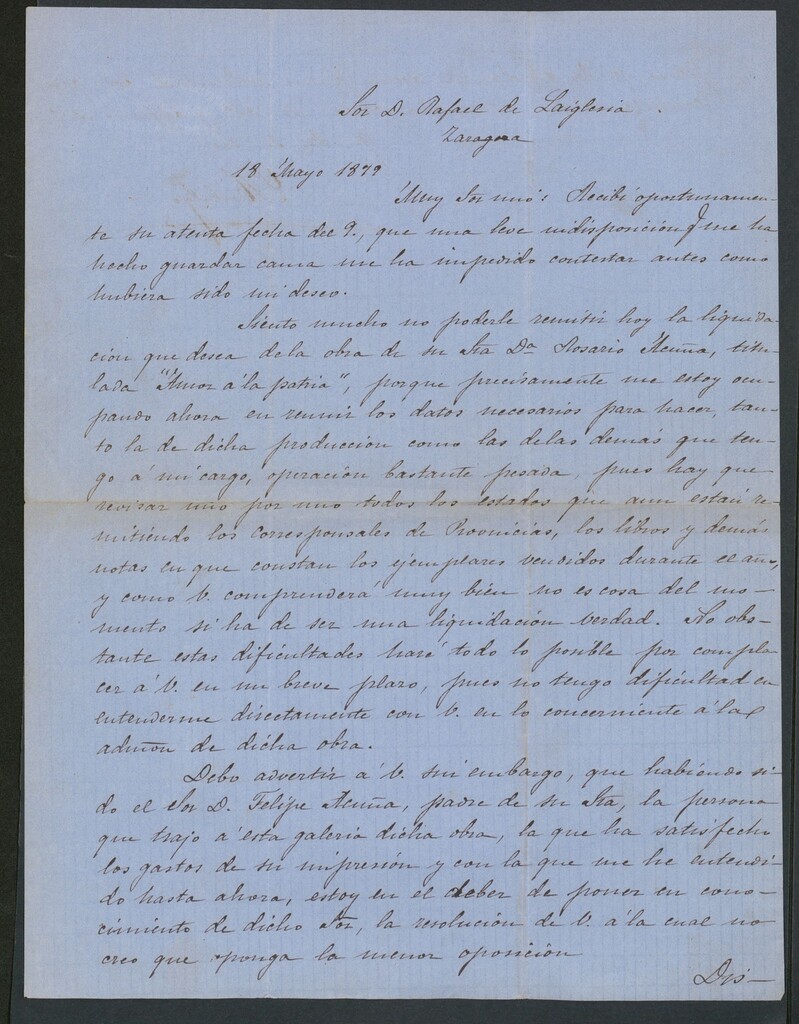 Sor D. Rafael de Laiglesia.
Zaragoza
18 Mayo 1879
Muy Sor mio: Recibí oportunamen-
te su atenta fecha del 9., que una leve indisposición q me ha
hecho guardar cama me ha impedido contestar antes como
hubiera sido mi deseo.
Siento mucho no poderle remitir hoy la liquida-
ción que desea dela obra de su Sra Da Rosario Acuña, titu-
lada "Amor á la patria", porque precisamente me estoy ocu-
pando ahora en reunir los datos necesarios para hacer, tan-
to la de dicha producción como las delas demás que ten-
go á mi cargo, operación bastante pesada, pues hay que
revisar uno por uno todos los estados que aun están re-
mitiendo los corresponsales de Provincias, los libros y demás
notas en que constan los ejemplares vendidos durante el año,
y como V. comprenderá muy bien no es cosa del mo-
mento si ha de ser una liquidación verdad. No obs-
tante estas dificultades haré todo lo posible por compla
cer á V. en un breve plazo, pues no tengo dificultad en
entenderme directamente con V. en lo concerniente á la
admon de dicha obra.
Debo advertir á V. sin embargo, que habiendo si-
do el Sor D. Felipe Acuña, padre de su Sra, la persona
que trajo á esta galeria dicha obra, la que ha satisfecho
los gastos de su impresión y con la que me he entendi-
do hasta ahora, estoy en el deber de poner en cono-
cimiento de dicho Sor, la resolución de V. á la cual no
creo que oponga la menor oposición
Dis-